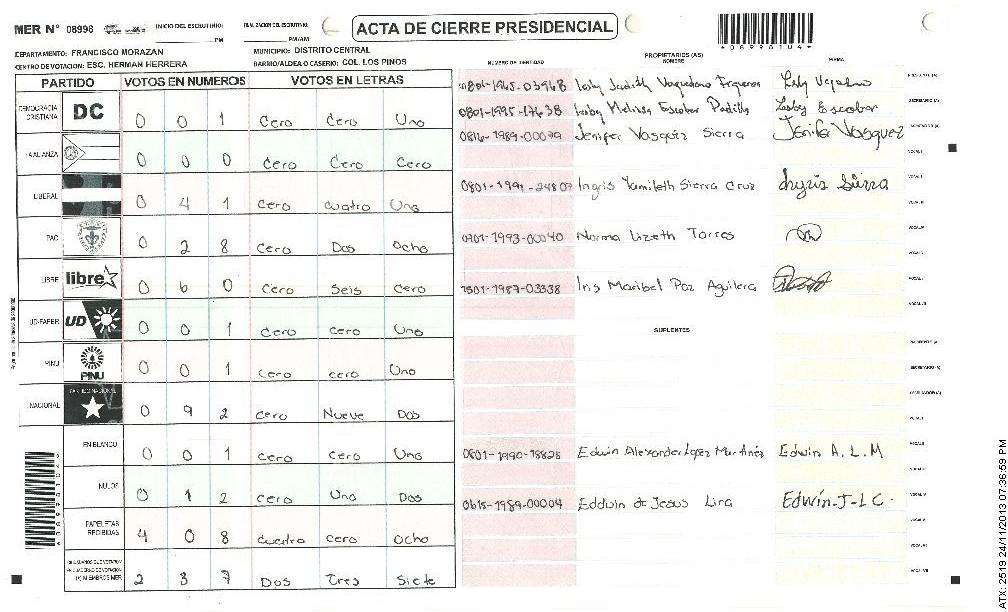 MER N° 08998 INICIO DEL ESCRUTINIO: PM PM/AM ACTA DE CIERRE PRESIDENCIAL
DEPARTAMENTO: FRANCISCO MORAZAN MUNICIPIO: DISTRITO CENTRAL
CENTRO DE VOTACION: ESC. HERMAN HERRERA BARRIO/ALDEA O CASERIO: COL. LOS PINOS
PARTIDO VOTOS EN NUMEROS VOTOS EN LETRAS
DEMOCRACIA CRISTIANA DC 0 0 1 Cero Cero Uno
LA ALIANZA 0 0 0 Cero Cero Cero
LIBERAL 0 4 1 Cero Cuatro Uno
PAC 0 2 8 Cero Dos Ocho
LIBRE libre 0 6 0 Cero Seis Cero
UD-FAPER UD 0 0 1 Cero cero Uno
PINU PINU 0 0 1 Cero cero Uno
NACIONAL PARTIDO NACIONAL 0 9 2 Cero Nueve Dos
EN BLANCO 0 0 1 Cero Cero Uno
NULOS 0 1 2 Cero Uno Dos
PAPELETAS RECIBIDAS 4 0 8 Cuatro Cero Ocho
(+) MIEMBROS MER 2 3 7 Dos Tres Siete
PROPIETARIOS (AS)
NUMERO DE IDENTIDAD NOMBRE FIRMA
0801-1965-03948 Judith Vaquedano Figueroa
0801-1985-17638 Lesby Melissa Escobar Padilla Lesby Escobar
0816-1989-00079 Jenifer Vasquez Sierra Jenifer Vasquez
0801-1991-24807 Ingris Yamileth Sierra Cruz Ingris Sierra
0701-1993-00040 Norma Lizeth Torres
1501-1987-03338 Iris Maribel Paz Aguilera
SUPLENTES
0801-1990-18828 Edwin Alexander Lopez Martinez Edwin A. L. M
0615-1989-00004 Eddwin de Jesus Lira Edwin-J-L C.
ATX: 2519 24/11/2013 07:36:59 PM